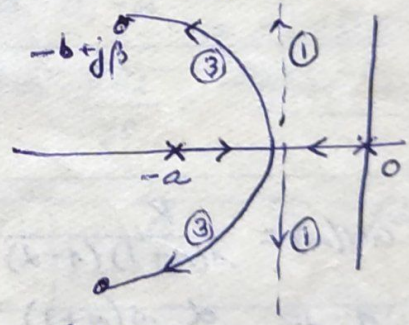 -b+jβ
③
①
-a
0
③
①